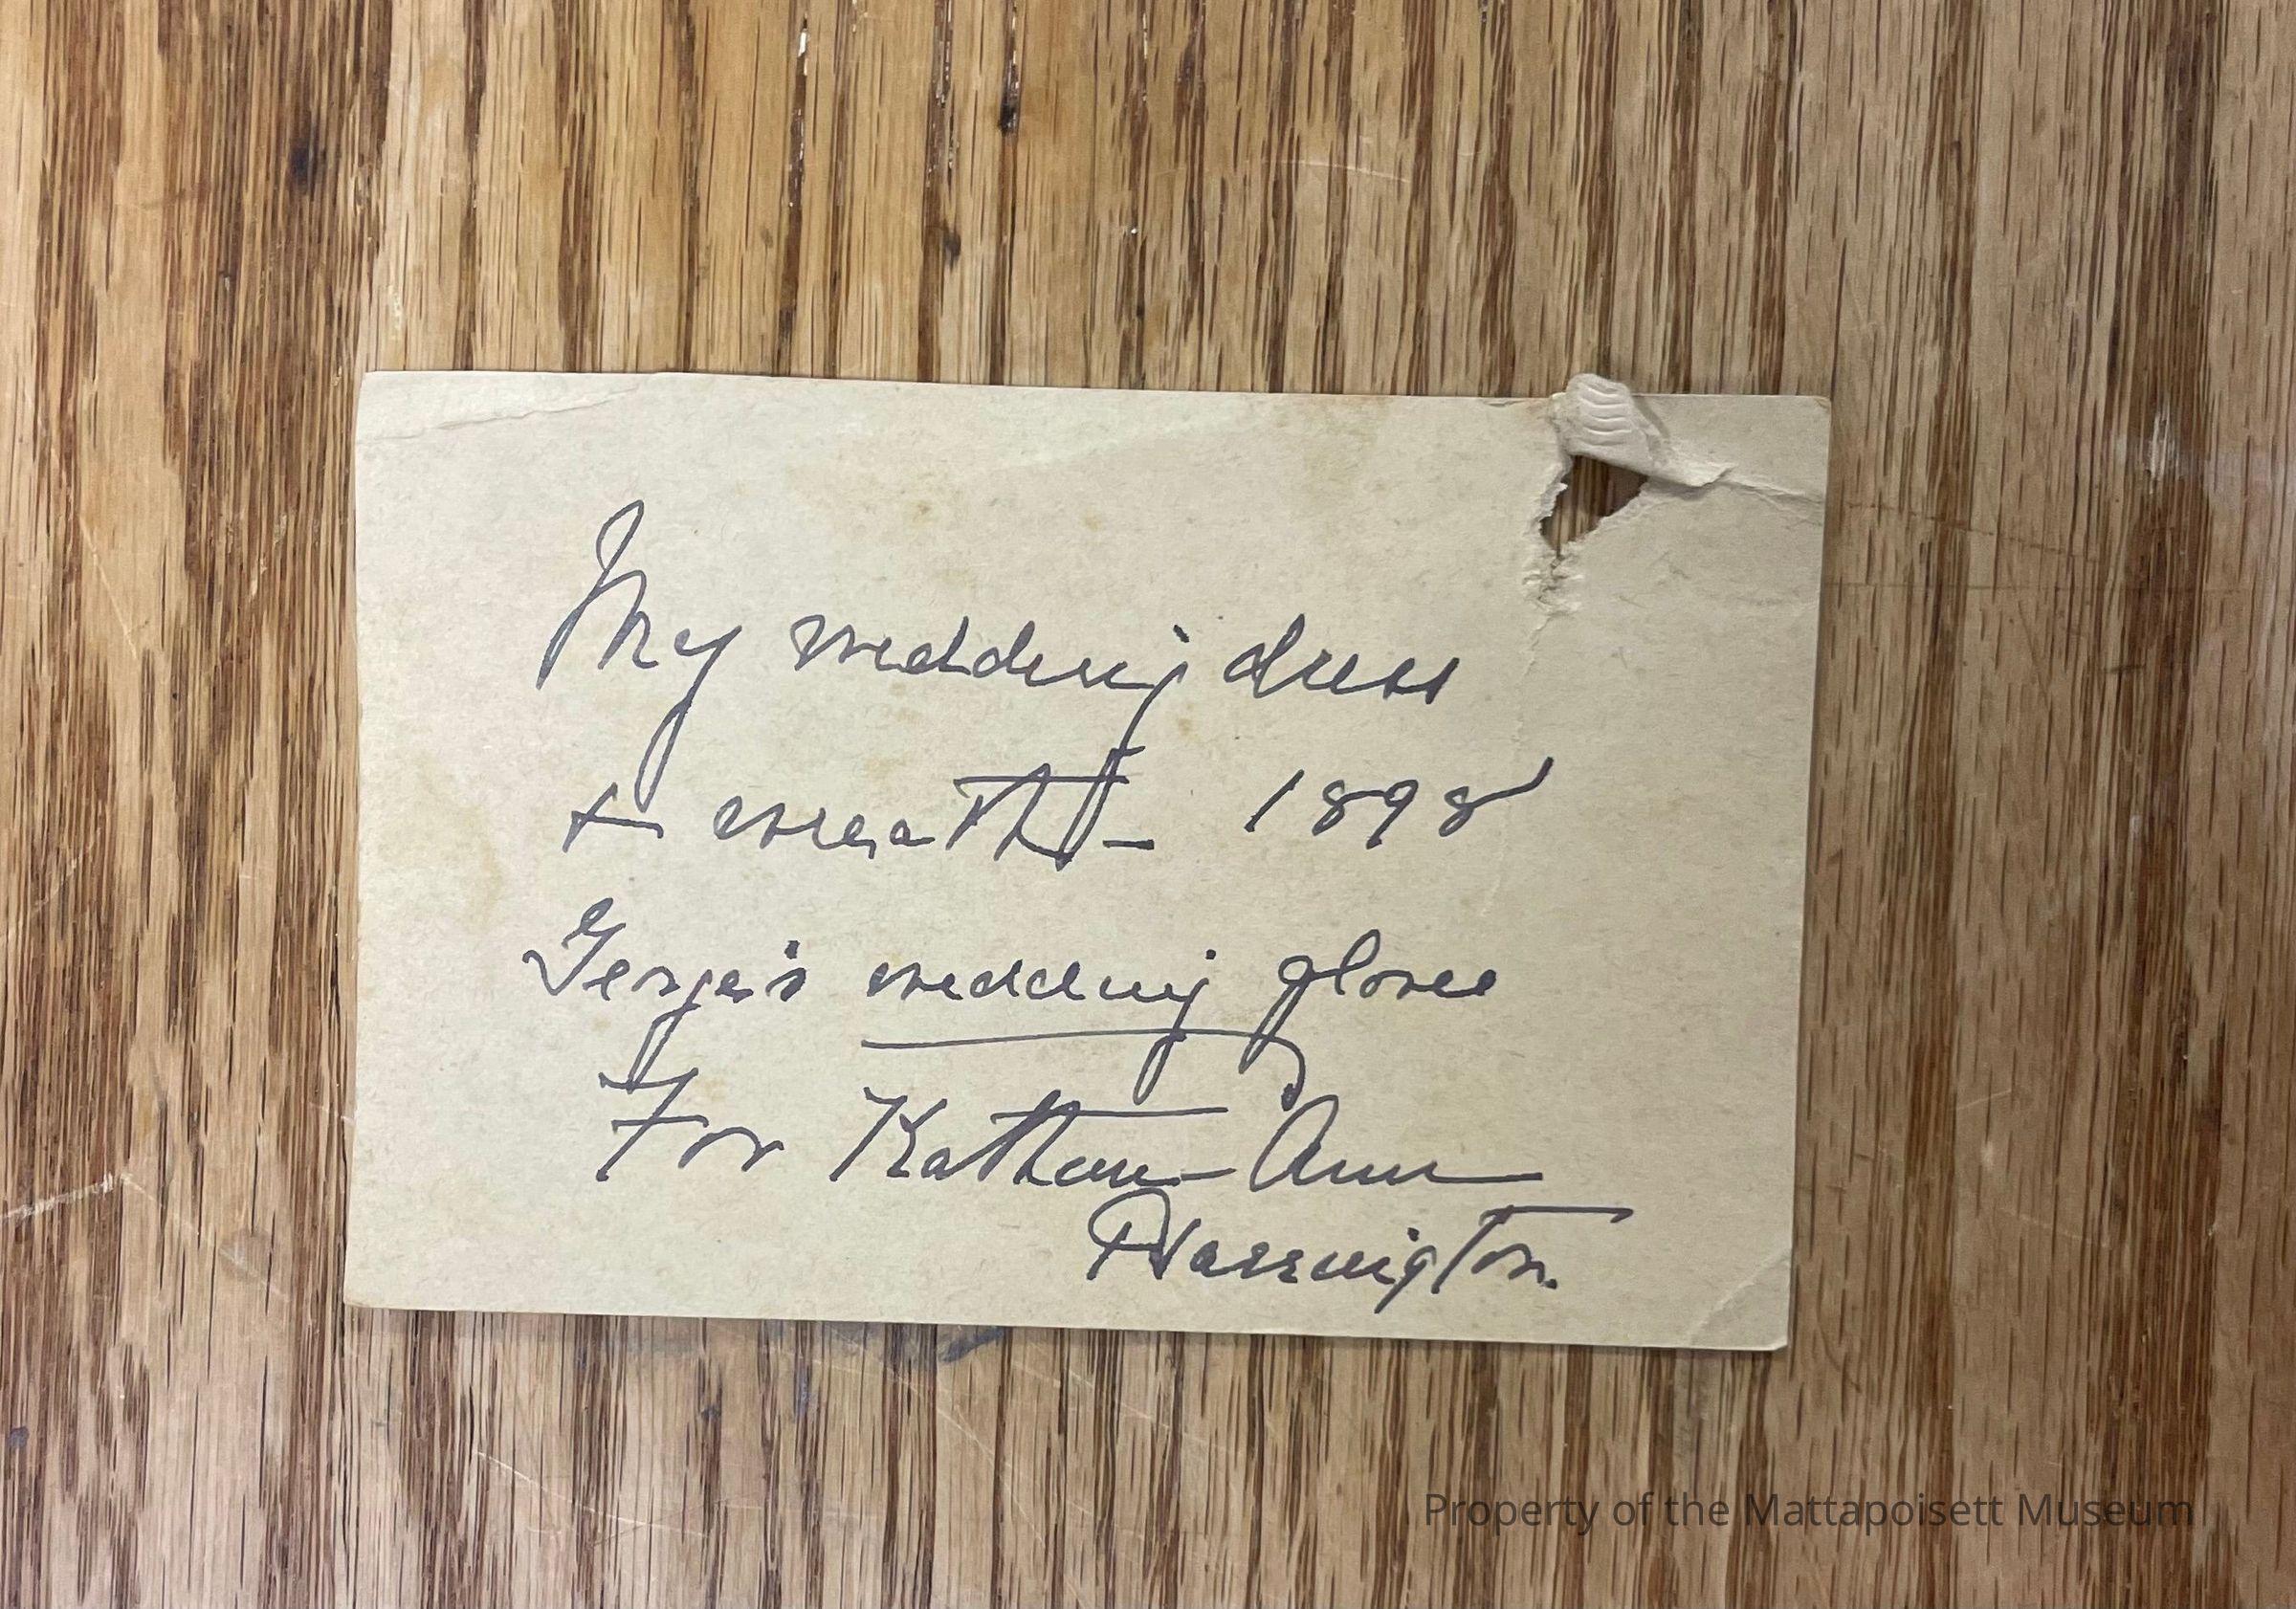 My wedding dress
+ wreath - 1898
George's wedding gloves
For Ann
Harrington.
Property of the Mattapoisett Museum